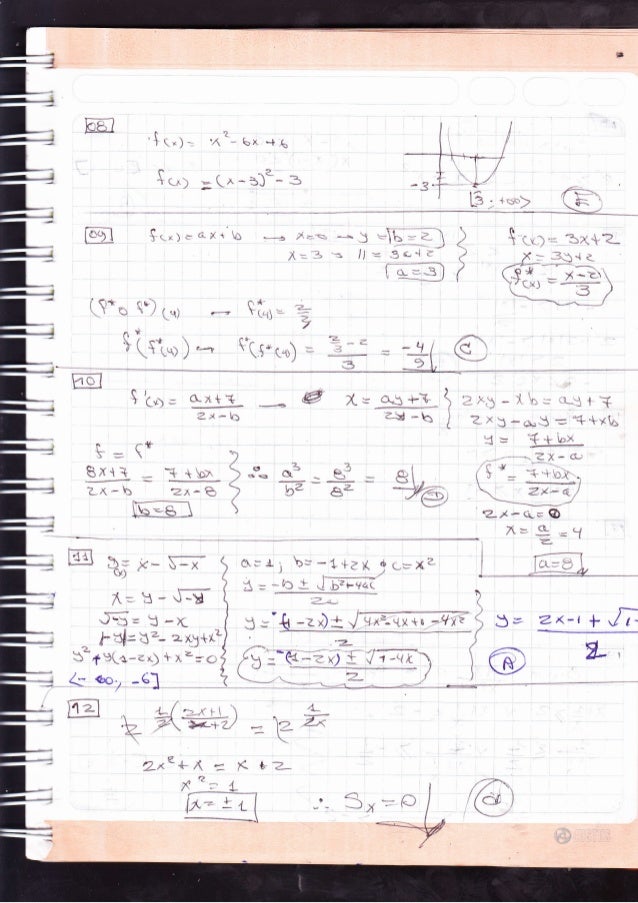 08
f(x) = x² - 6x + 6
f(x) = (x-3)² - 3
-3
[3; +∞>
E
09
f(x) = ax + b → x=0 → y = b = 2
x = 3 → 11 = 3a+2
a = 3
f*(x) = 3x+2
x = 3y+2
f*(x) = (x-2)/3
(f* o f*)(4) → f*(4) = 2/3
f*(f*(4)) → f*(f*(4)) = (2/3 - 2)/3 = -4/9
C
10
f(x) = (ax+7)/(2x-b) → x = (ay+7)/(2y-b)
2xy - xb = ay + 7
2xy - ay = 7 + xb
y = (7+bx)/(2x-a)
f* = (7+bx)/(2x-a)
2x - a = 0
x = a/2 = 4
a=8
f = f*
(8x+7)/(2x-b) = (7+bx)/(2x-8)
b=8
∴ a³/b² = 8³/8² = 8
D
11
g(x) = x - √-x
x = y - √-y
√-y = y - x
-y = y² - 2xy + x²
y² + y(1-2x) + x² = 0
<-∞, -6]
a=1; b=-1+2x c=x²
y = (-b ± √b²+4ac)/2a
y = (-(1-2x) ± √4x²-4x+1-4x²)/2
y = (-(1-2x) ± √1-4x)/2
y = (2x-1+√1-)/2
A
12
2^(1/2((2x+1)/(x+2))) = 2^(1/2x)
2x² + x = x + 2
x² = 1
x = ±1
∴ Sx = 0
d